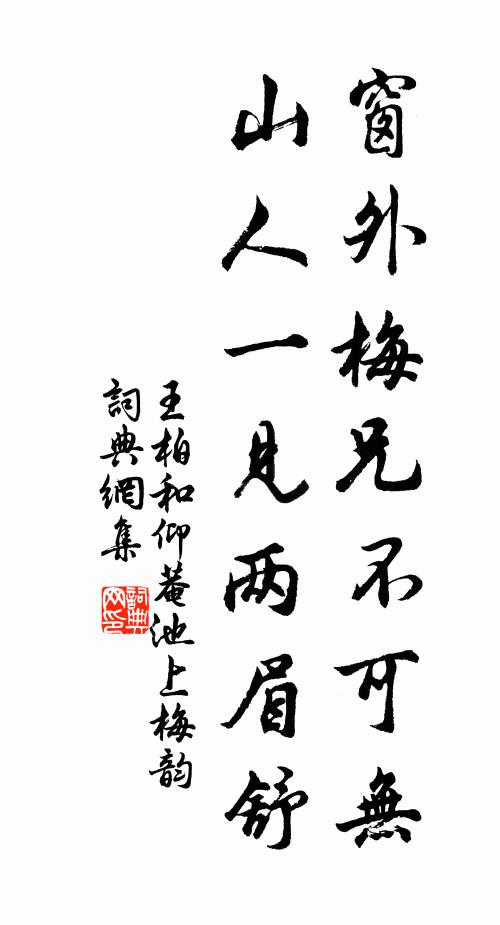 窗外梅兄不可無
山人一見两眉舒
王柏和仰菴池上梅韵
詞典網集
詞典
网印